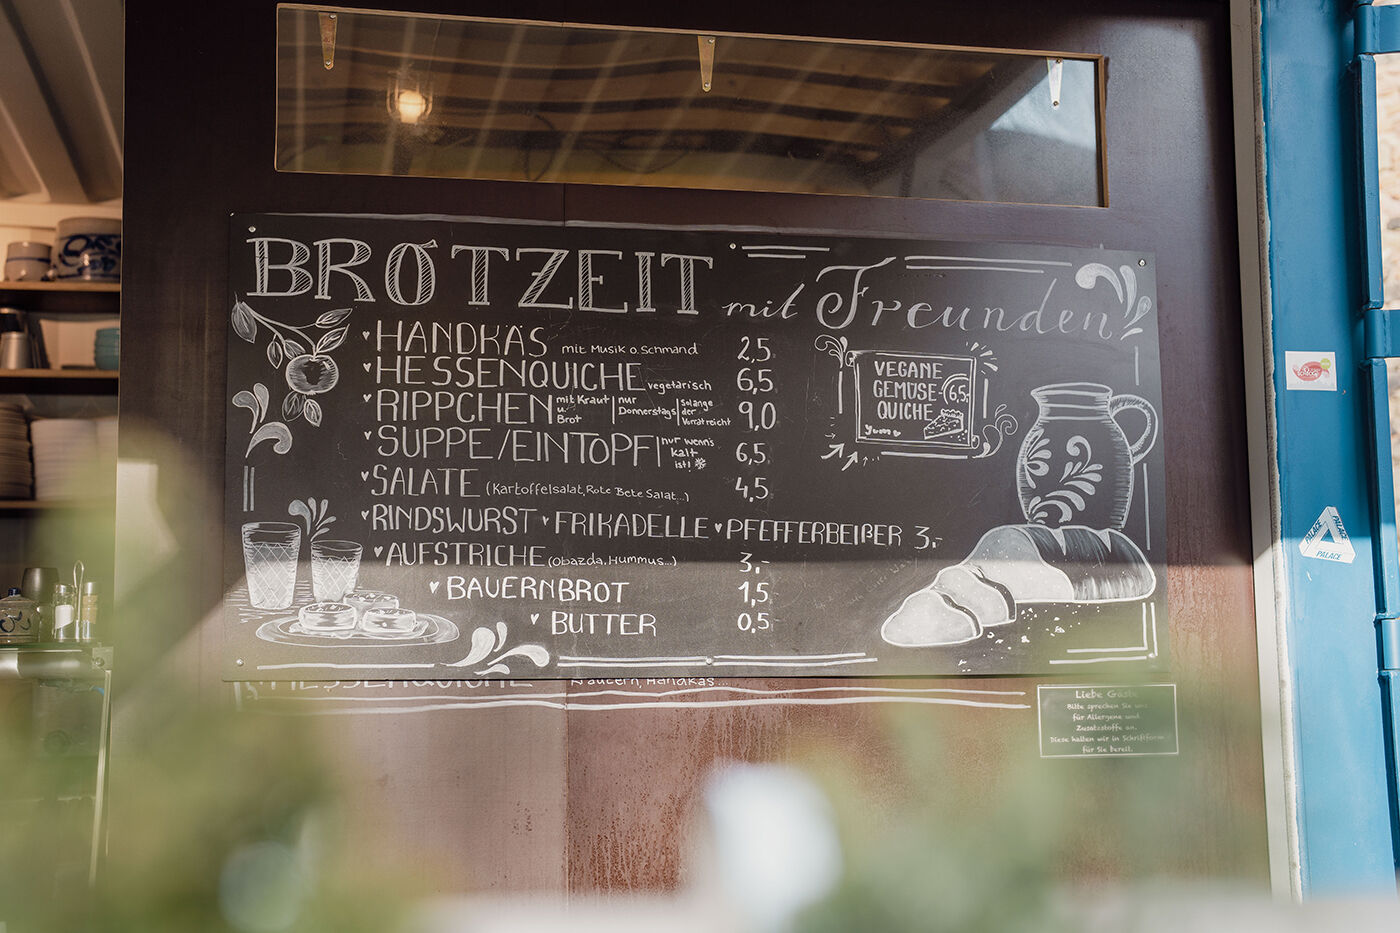 BROTZEIT mit Freunden
HANDKÄS mit Musik o. Schmand 2,5
HESSENQUICHE vegetarisch 6,5
RIPPCHEN mit Kraut u. Brot | nur Donnerstags | solange der Vorrat reicht 9,0
SUPPE/EINTOPF | nur wenn's kalt ist! 6,5
SALATE (Kartoffelsalat, Rote Bete Salat...) 4,5
RINDSWURST FRIKADELLE PFEFFERBEIßER 3,-
AUFSTRICHE (Obazda, Hummus...) 3,-
BAUERNBROT 1,5
BUTTER 0,5
VEGANE
GEMÜSE- 6,5
QUICHE
HESSENQUICHE Handkäs...
Liebe Gäste
Bitte sprechen Sie uns
für Allergene und
Zusatzstoffe an.
Diese halten wir in Schriftform
für Sie bereit.
PALACE
PALACE
PALACE